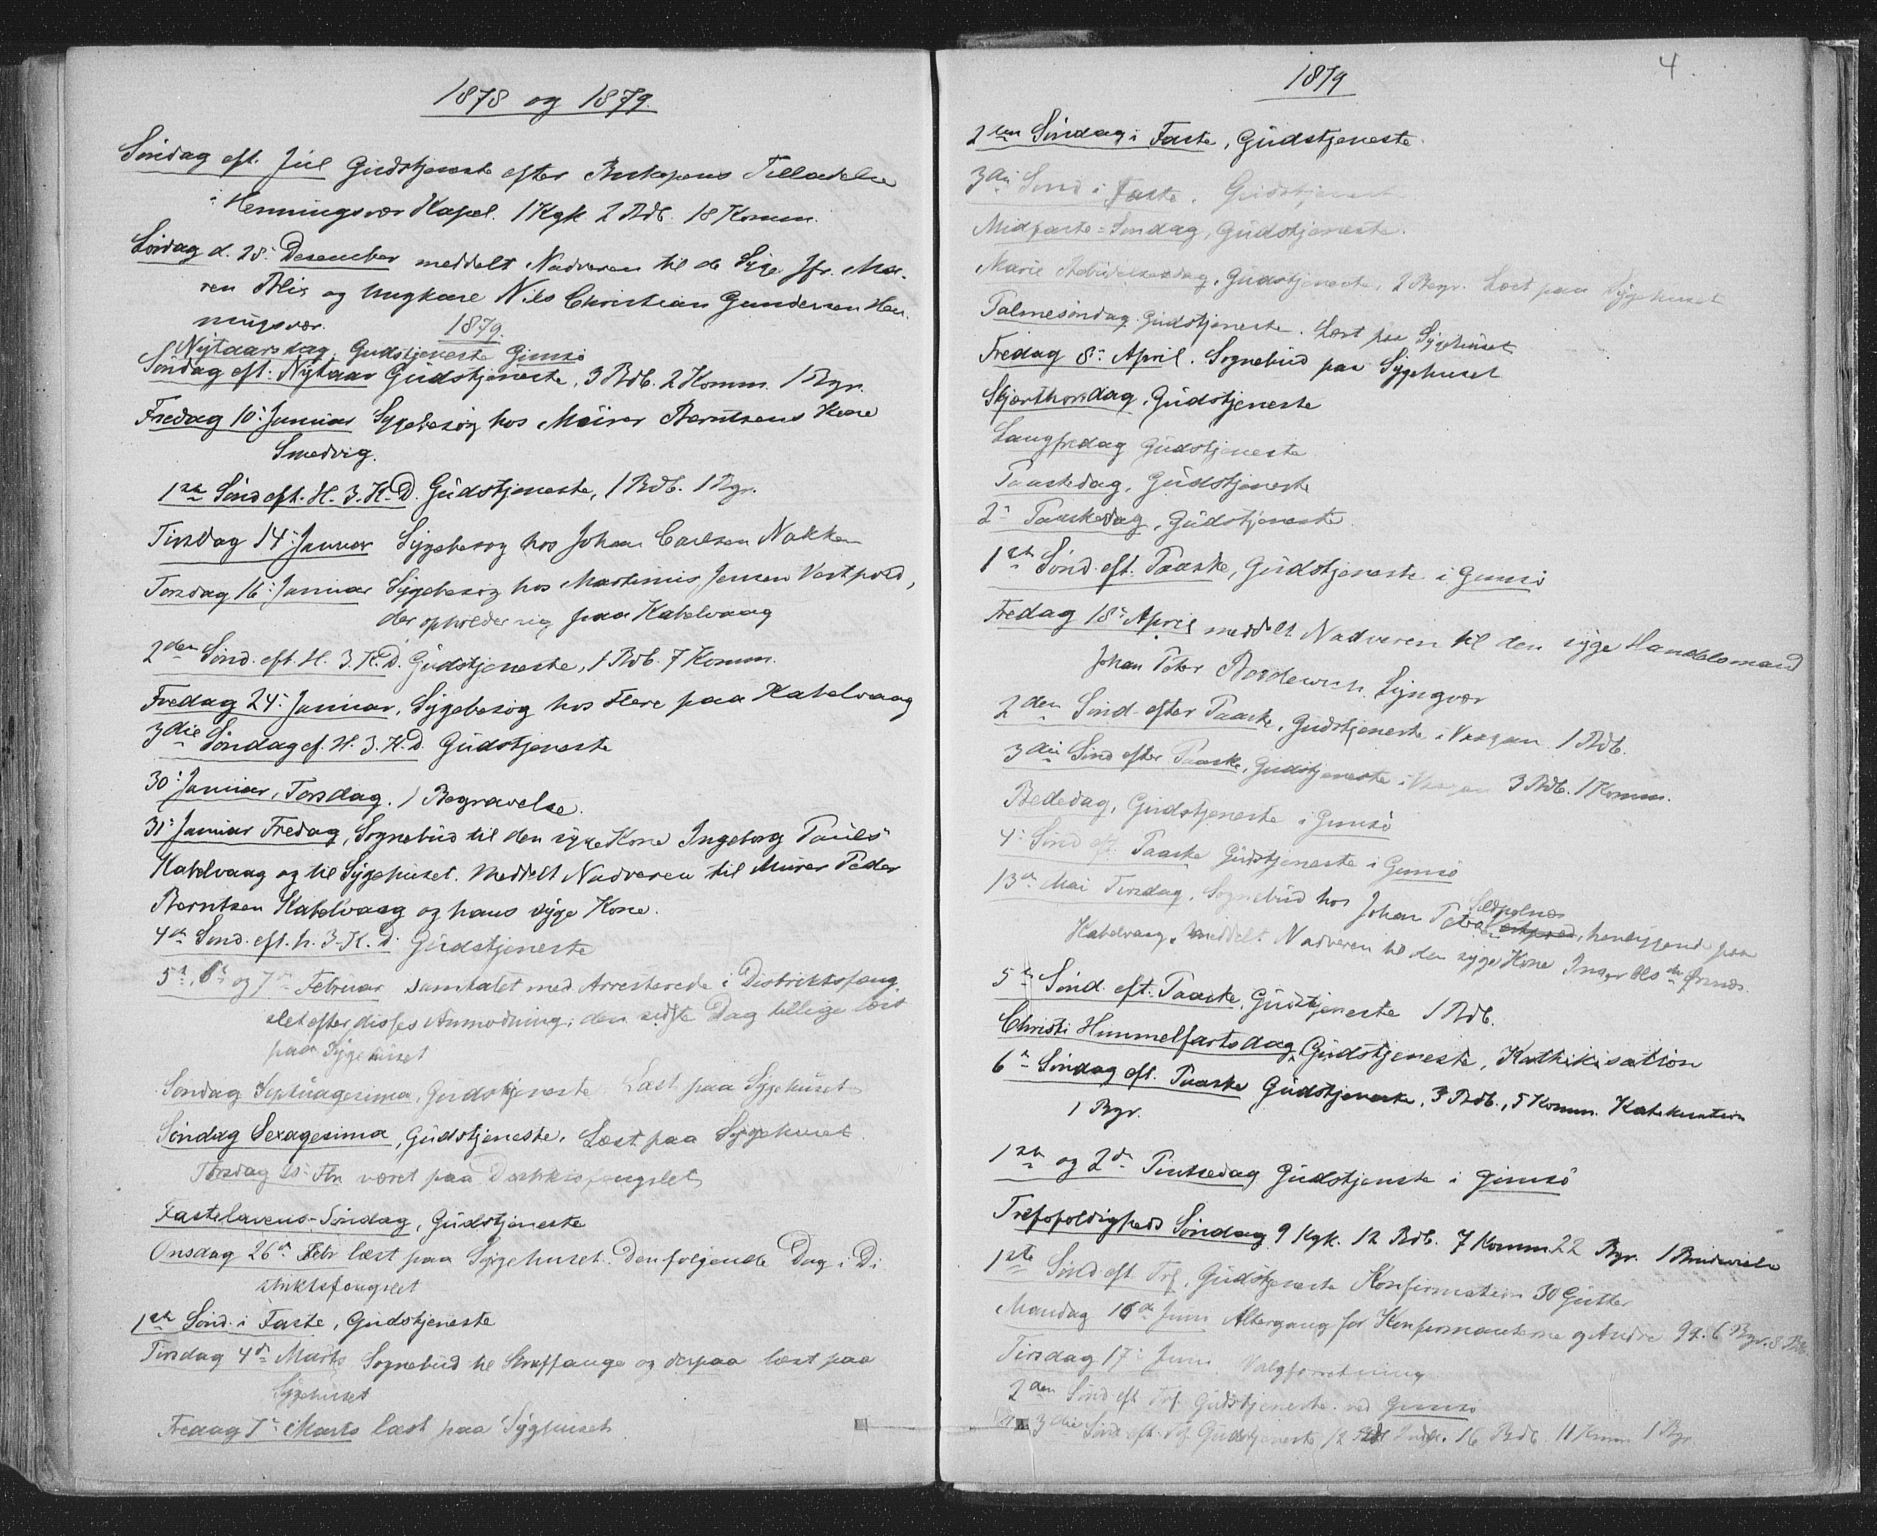 1878 og 1879.
Søndag eft. Jul Gudstjeneste efter Biskopens Tilladelse
i Henningsvær Kapel. 1 Kgk 2 Bdb. 18 Komm.
Lørdag d. 28: Desember meddelt Nadveren til de Syge Jfr. Ma-
ren Friis og Ungkarl Nils Christian Gundersen Hen-
ningsvær.
1879
Nytaarsdag, Gudstjeneste Gimsø
Søndag eft. Nytaar Gudstjeneste, 3 Bdb. 2 Komm. 1 Bgr.
Fredag 10: Januar Sygebesøg hos Murer Berntsens Kone
Smedvig.
1ste Sønd eft. H. 3. K. D. Gudstjeneste, 1 Bdb. 1 Bgr.
Tirsdag 14: Januar Sygebesøg hos Johan Carlsen Nakken
Torsdag 16: Januar Sygebesøg hos Martinus Jensen Vestpold,
der opholder sig paa Kabelvaag
2den Sønd. eft. H. 3. K. D. Gudstjeneste, 1 Bdb. 7 Komm.
Fredag 24: Januar, Sygebesøg hos Flere paa Kabelvaag
3die Søndag ef. H. 3. K. D. Gudstjeneste
30: Januar, Torsdag. 1 Begravelse.
31: Januar Fredag, Sognebud til den syge Kone Ingeborg Pauls
Kabelvaag og til Sygehuset. Meddelt Nadveren til Murer Peder
Berntsen Kabelvaag og hans syge Kone.
4de Sønd. eft. h. 3. K. D. Gudstjeneste
5te, 6te og 7de Februar samtalet med Arresterede i Distriktsfæng-
slet efter disses Anmodning; den sidste Dag tillige læst
paa Sygehuset
Søndag Septuagesima, Gudstjeneste Læst paa Sygehuset
Søndag Sexagesima, Gudstjeneste. Læst paa Sygehuset
Torsdag Fbr været paa Distriktsfængslet
Fastelavens-Søndag, Gudstjeneste
Onsdag 26de Febr læst paa Sygehuset. Den følgende Dag i Di-
striktsfængslet
1ste Sønd. i Faste, Gudstjeneste
Tirsdag 4de Marts Sognebud til Straffange og derpaa læst paa
Sygehuset
Fredag 7de Marts læst paa Sygehuset
4.
1879
2den Søndag i Faste, Gudstjeneste.
3die Sønd i Faste. Gudstjeneste
Midfaste-Søndag, Gudstjeneste.
Marie Bebudelsesdag, Gudstjeneste, 2 Begr. Læst paa Sygehuset
Palmesøndag. Gudstjeneste. Læst paa Sygehuset
Fredag 8: April. Sognebud paa Sygehuset
Skjærthorsdag, Gudstjeneste
Langfredag Gudstjeneste
Paaskedag, Gudstjeneste
2: Paaskedag, Gudstjeneste
1ste Sønd. eft. Paaske, Gudstjeneste i Gimsø
Fredag 18: April meddelt Nadveren til den syge Handelsmand
Johan Peter Lyngvær
2den Sønd. efter Paaske, Gudstjeneste i Vaagan. 1 Bdb.
3die Sønd efter Paaske, Gudstjeneste i Vaagan 3 Bdb. 1 Komm.
Bededag, Gudstjeneste i Gimsø
4: Sønd eft. Paaske Gudstjeneste i Gimsø
13de Mai Tirsdag, Sognebud hos Johan henliggende paa
Kabelvaag. Meddelt Nadveren til den syge Kone Inger Olsdr
5te Sønd. eft. Paaske, Gudstjeneste 1 Bdb.
Christi Himmelfartsdag Gudstjeneste, Kathikisation
6te Søndag eft. Paaske Gudstjeneste, 3 Bdb., 5 Komm. Katekisation
1 Bgr.
1ste og 2den Pintsedag Gudstjeneste i Gimsø
Trefoldigheds Søndag 9 Kgk. 12 Bdb. 7 Komm. 22 Bgr. 1 Brudevielse
1ste Sønd eft Trf. Gudstjeneste Konfirmation 30 Gutter
Mandag 16de Juni Altergang for Konfirmanterne og Andre 97. 6 Bgr. 8 Bdb.
Tirsdag 17: Juni Valgforretning
2den Sønd eft Trf. Gudstjeneste ved Gimsø
3die Sønd eft. Trf. Gudstjeneste 12 16 Bdb 11 Komm 1 Bgr